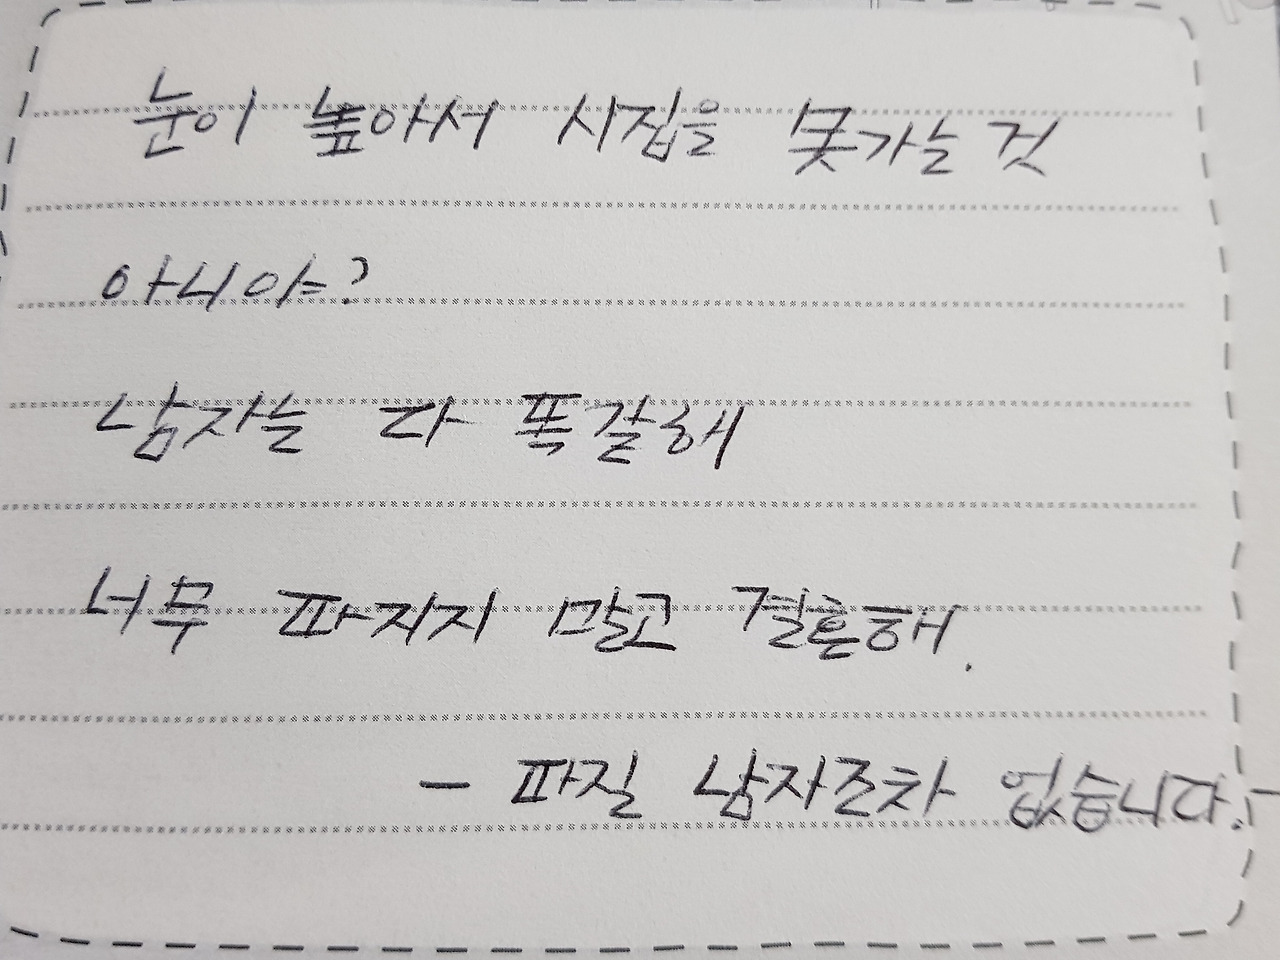 눈이 높아서 시집을 못가는 것
아니야?
남자는 다 똑같해
너무 따지지 말고 결혼해.
- 따질 남자조차 없습니다. -